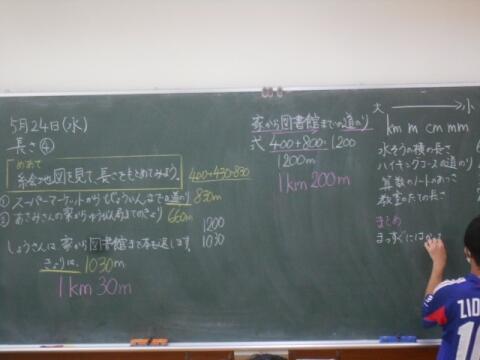 5月24日(水)
長さ④
めあて
絵地図を見て、長さをもとめてみよう。
400+430=830
①スーパーマーケットから までの道のり 830m
②あさみさんの家から までのきょり 660m
1200
1030
しょうさんは家から図書館まで
きょりは、1030m
1km30m
家から図書館までの道のり
式 400+800=1200
1200m
1km200m
大 → 小
km m cm mm
水そうの横の長さ
ハイキングコースの道のり
算数のノートのあつさ
教室のたての長さ
まとめ
まっすぐには
ZID
10